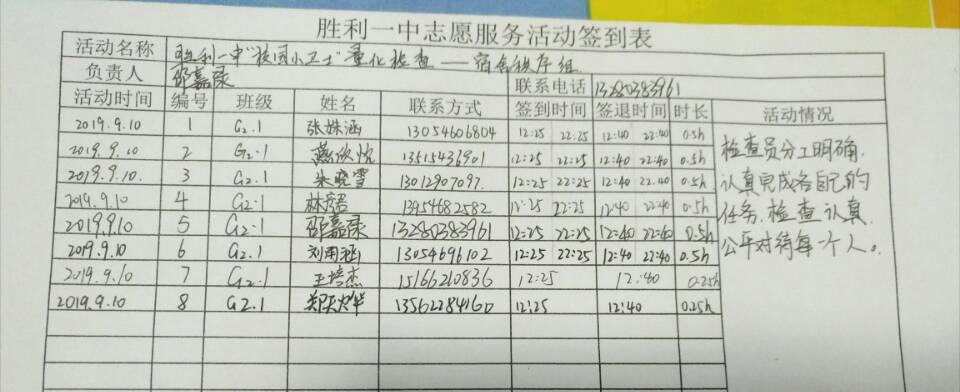 胜利一中志愿服务活动签到表
活动名称 胜利一中"校园小卫士"量化检查——宿舍秩序组
负责人 邵嘉录 联系电话 13280383961
活动时间 编号 班级 姓名 联系方式 签到时间 签退时间 时长 活动情况
2019.9.10 1 G2.1 张姝涵 13054606804 12:25 22:25 12:40 22:40 0.5h
2019.9.10 2 G2.1 燕欣悦 13515436901 12:25 22:25 12:40 22:40 0.5h
2019.9.10. 3 G2.1 朱晓雪 13012907097. 12:25 22:25 12:40 22:40 0.5h
2019.9.10 4 G2.1 13954682582 12:25 22:25 12:40 22:40 0.5h
2019.9.10 5 G2.1 邵嘉录 13280383961 12:25 22:25 12:40 22:40 0.5h
2019.9.10 6 G2.1 刘雨涵 13054696102 12:25 22:25 12:40 22:40 0.5h
2019.9.10 7 G2.1 王培杰 15166210836 12:25 12:40 0.25h
2019.9.10 8 G2.1 13562284160 12:25 12:40 0.25h
检查员分工明确.
认真完成各自己的
任务.检查认真.
公平对待每一个人。